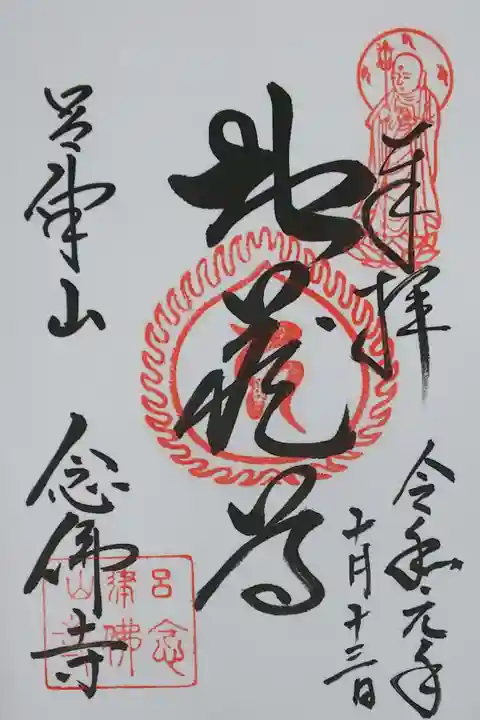 奉拝
令和元年
十月十三日
地蔵尊
呂律山
念佛寺
呂律山
念佛寺